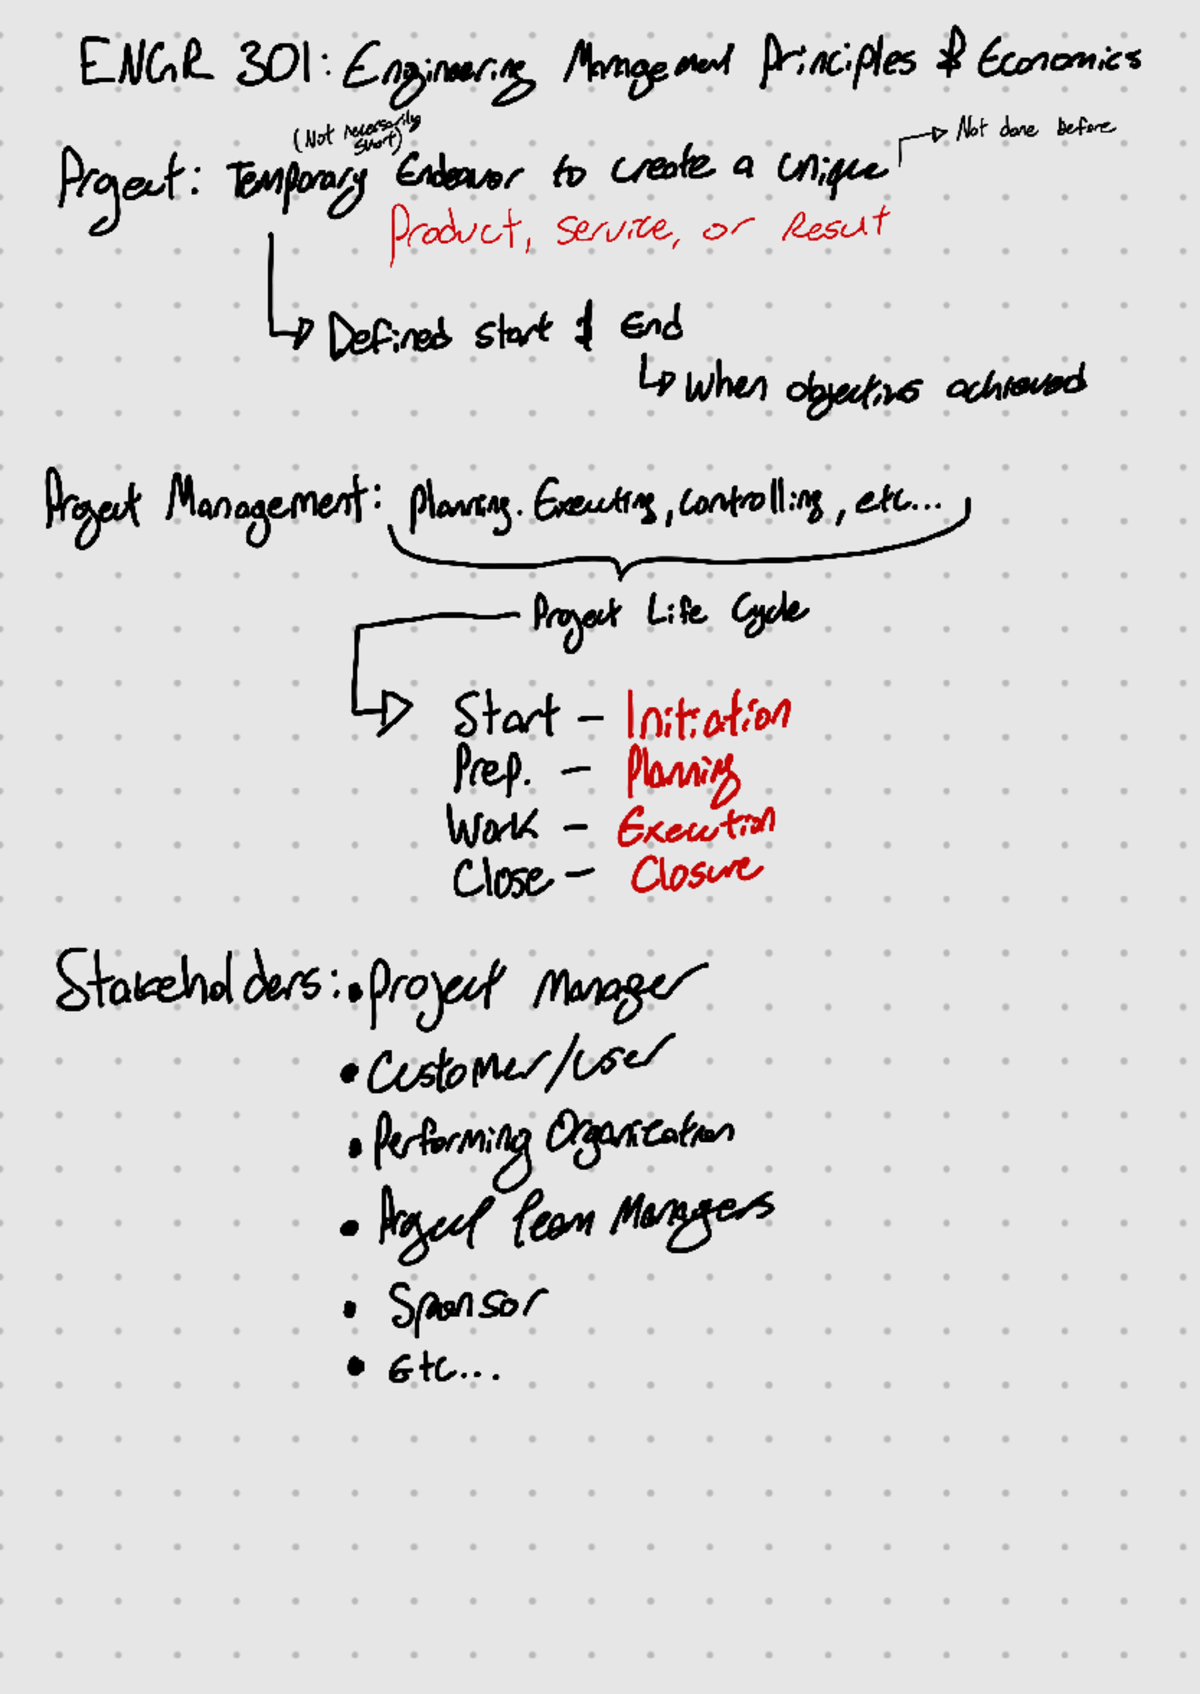 ENGR 301: Engineering Management Principles & Economics
(Not necessarily short)
Not done before
Project: Temporary Endeavor to create a unique
Product, Service, or Result
Defined start & End
When objectives achieved
Project Management: Planning. Executing, controlling, etc...
Project Life Cycle
Start - Initiation
Prep. - Planning
Work - Execution
Close - Closure
Stakeholders: • Project Manager
• Customer/user
• Performing Organization
• Project Team Managers
• Sponsor
• Etc...